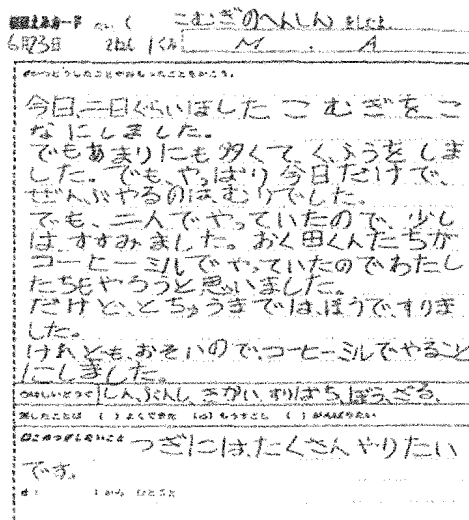 こむぎのへんしん をしたよ
6月23日 2ねん 1くみ M . A
今日、二日くらいほした こむぎを こ
なにしました。
でもあまりにも 多くて、くろうを しま
した。でも、やっぱり 今日だけで、
ぜんぶやるのは、むりでした。
でも、二人でやっていたので、少し
は、すすみました。おく田くんたちが
コーヒーミルでやっていたのでわたし
たちもやろうと思いました。
だけど、とちゅうまでは、ぼうで、すりま
した。
けれども、おそいので、コーヒーミルでやること
にしました。
すりばち、ぼう、ざる、
( ) よくできた (o) もうすこし ( ) がんばりたい
つぎには、たくさん やりたい
です。